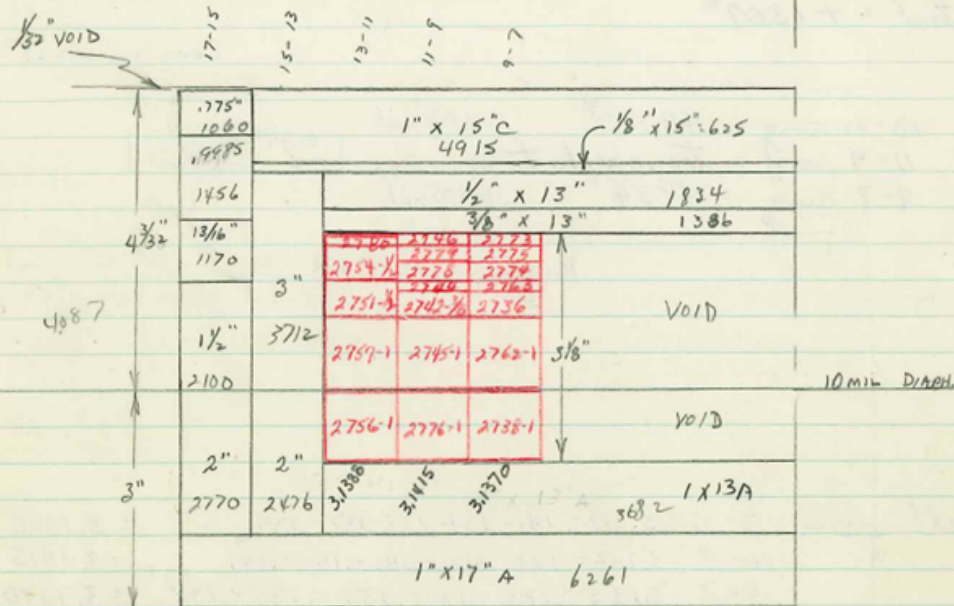 1/32" VOID
17-15
15-13
13-11
11-9
9-7
.775"
1060
.9985
1456
13/16"
1170
1 1/2"
2100
2"
2770
1" x 15"C
4915
1/8" x 15":625
1/2" x 13" 1834
3/8" x 13" 1386
4 3/32"
4087
3"
3"
3712
2"
2476
2780 2746 2773
2754-1/2 2779 2775
2770 2774
2751-1/2 2742-3/8 2736
2757-1 2745-1 2762-1
2756-1 2776-1 2738-1
3 1/8"
VOID
10 MIL DIAPH.
VOID
3.1388
3.1415
3.1370
1 x 13A
3682
1" x 17" A 6261